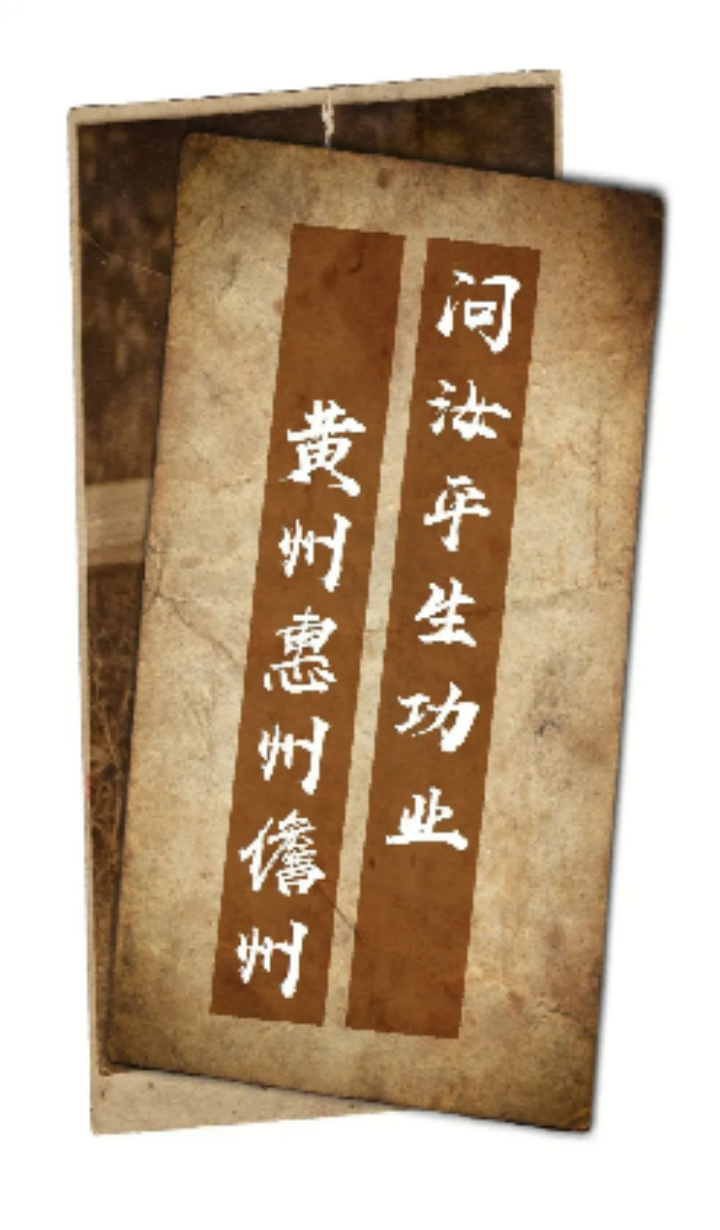 问汝平生功业
黄州惠州儋州